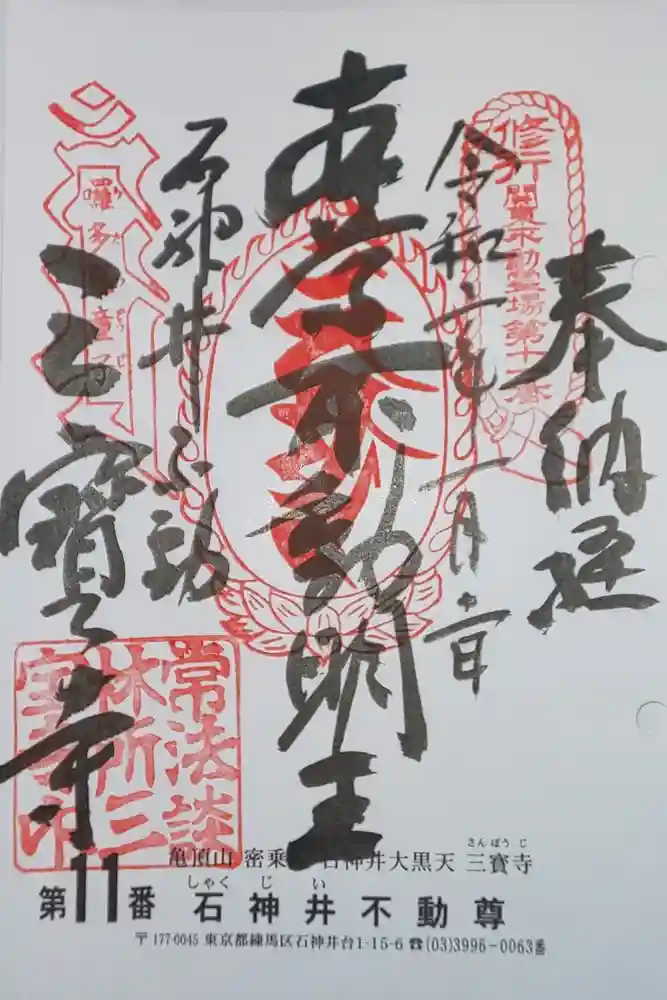 奉納経
修行
関東不動霊場第十一番
令和二年一月 日
本尊不動明王
石神井不動
三寶寺
常法談
林所三
宝寺印
さんぽうじ
亀頂山 密乗 石神井大黒天 三寶寺
しゃくじい
第11番 石神井不動尊
〒177-0045 東京都練馬区石神井台1-15-6 ☎(03)3996-0063番